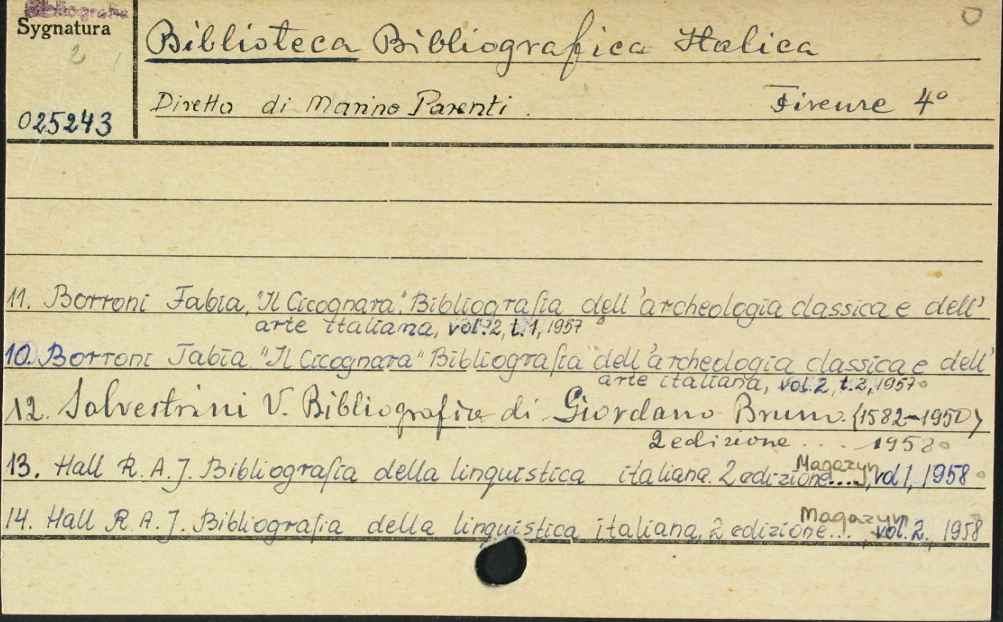 Bibliografie
Sygnatura
2
025243
Biblioteca Bibliografica Italica
Diretta di Marino Parenti.
Firenze 4°
11. Borroni Fabia, "Il Cicognara". Bibliografia dell'archeologia classica e dell'
arte italiana, vol. 2, t. 1, 1957
10. Borroni Fabia "Il Cicognara" Bibliografia dell'archeologia classica e dell'
arte italiana, vol. 2, t. 2, 1957
12. Salvestrini V. Bibliografia di Giordano Bruno (1582-1950)
2 edizione ... 1958
13. Hall R. A. J. Bibliografia della linguistica italiana. 2 edizione..., vol 1, 1958
Magazyn
14. Hall R. A. J. Bibliografia della linguistica italiana, 2 edizione... vol. 2, 1958
Magazyn